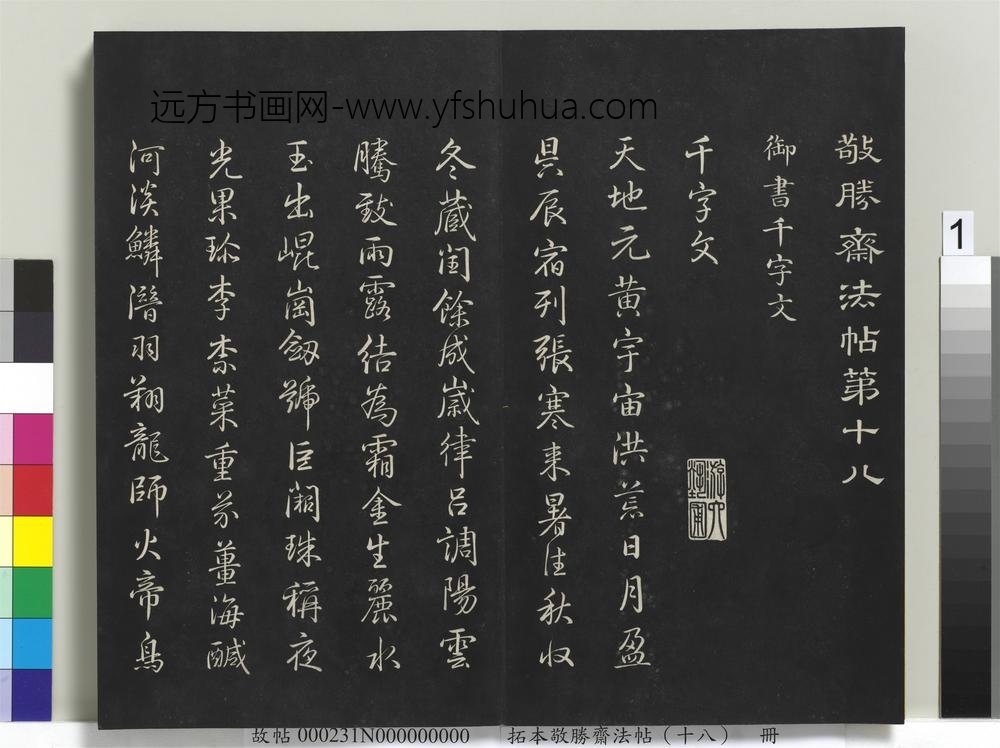 远方书画网-www.yfshuhua.com
敬勝齋法帖第十八
御書千字文
千字文
天地元黃宇宙洪荒日月盈
昃辰宿列張寒来暑往秋收
冬蔵閏餘成歲律呂調陽雲
騰致雨露結為霜金生麗水
玉出崐崗劔號巨闕珠稱夜
光果珎李柰菜重芥薑海鹹
河淡鱗潛羽翔龍師火帝鳥
1
故帖 000231N000000000 拓本敬勝齋法帖（十八） 冊